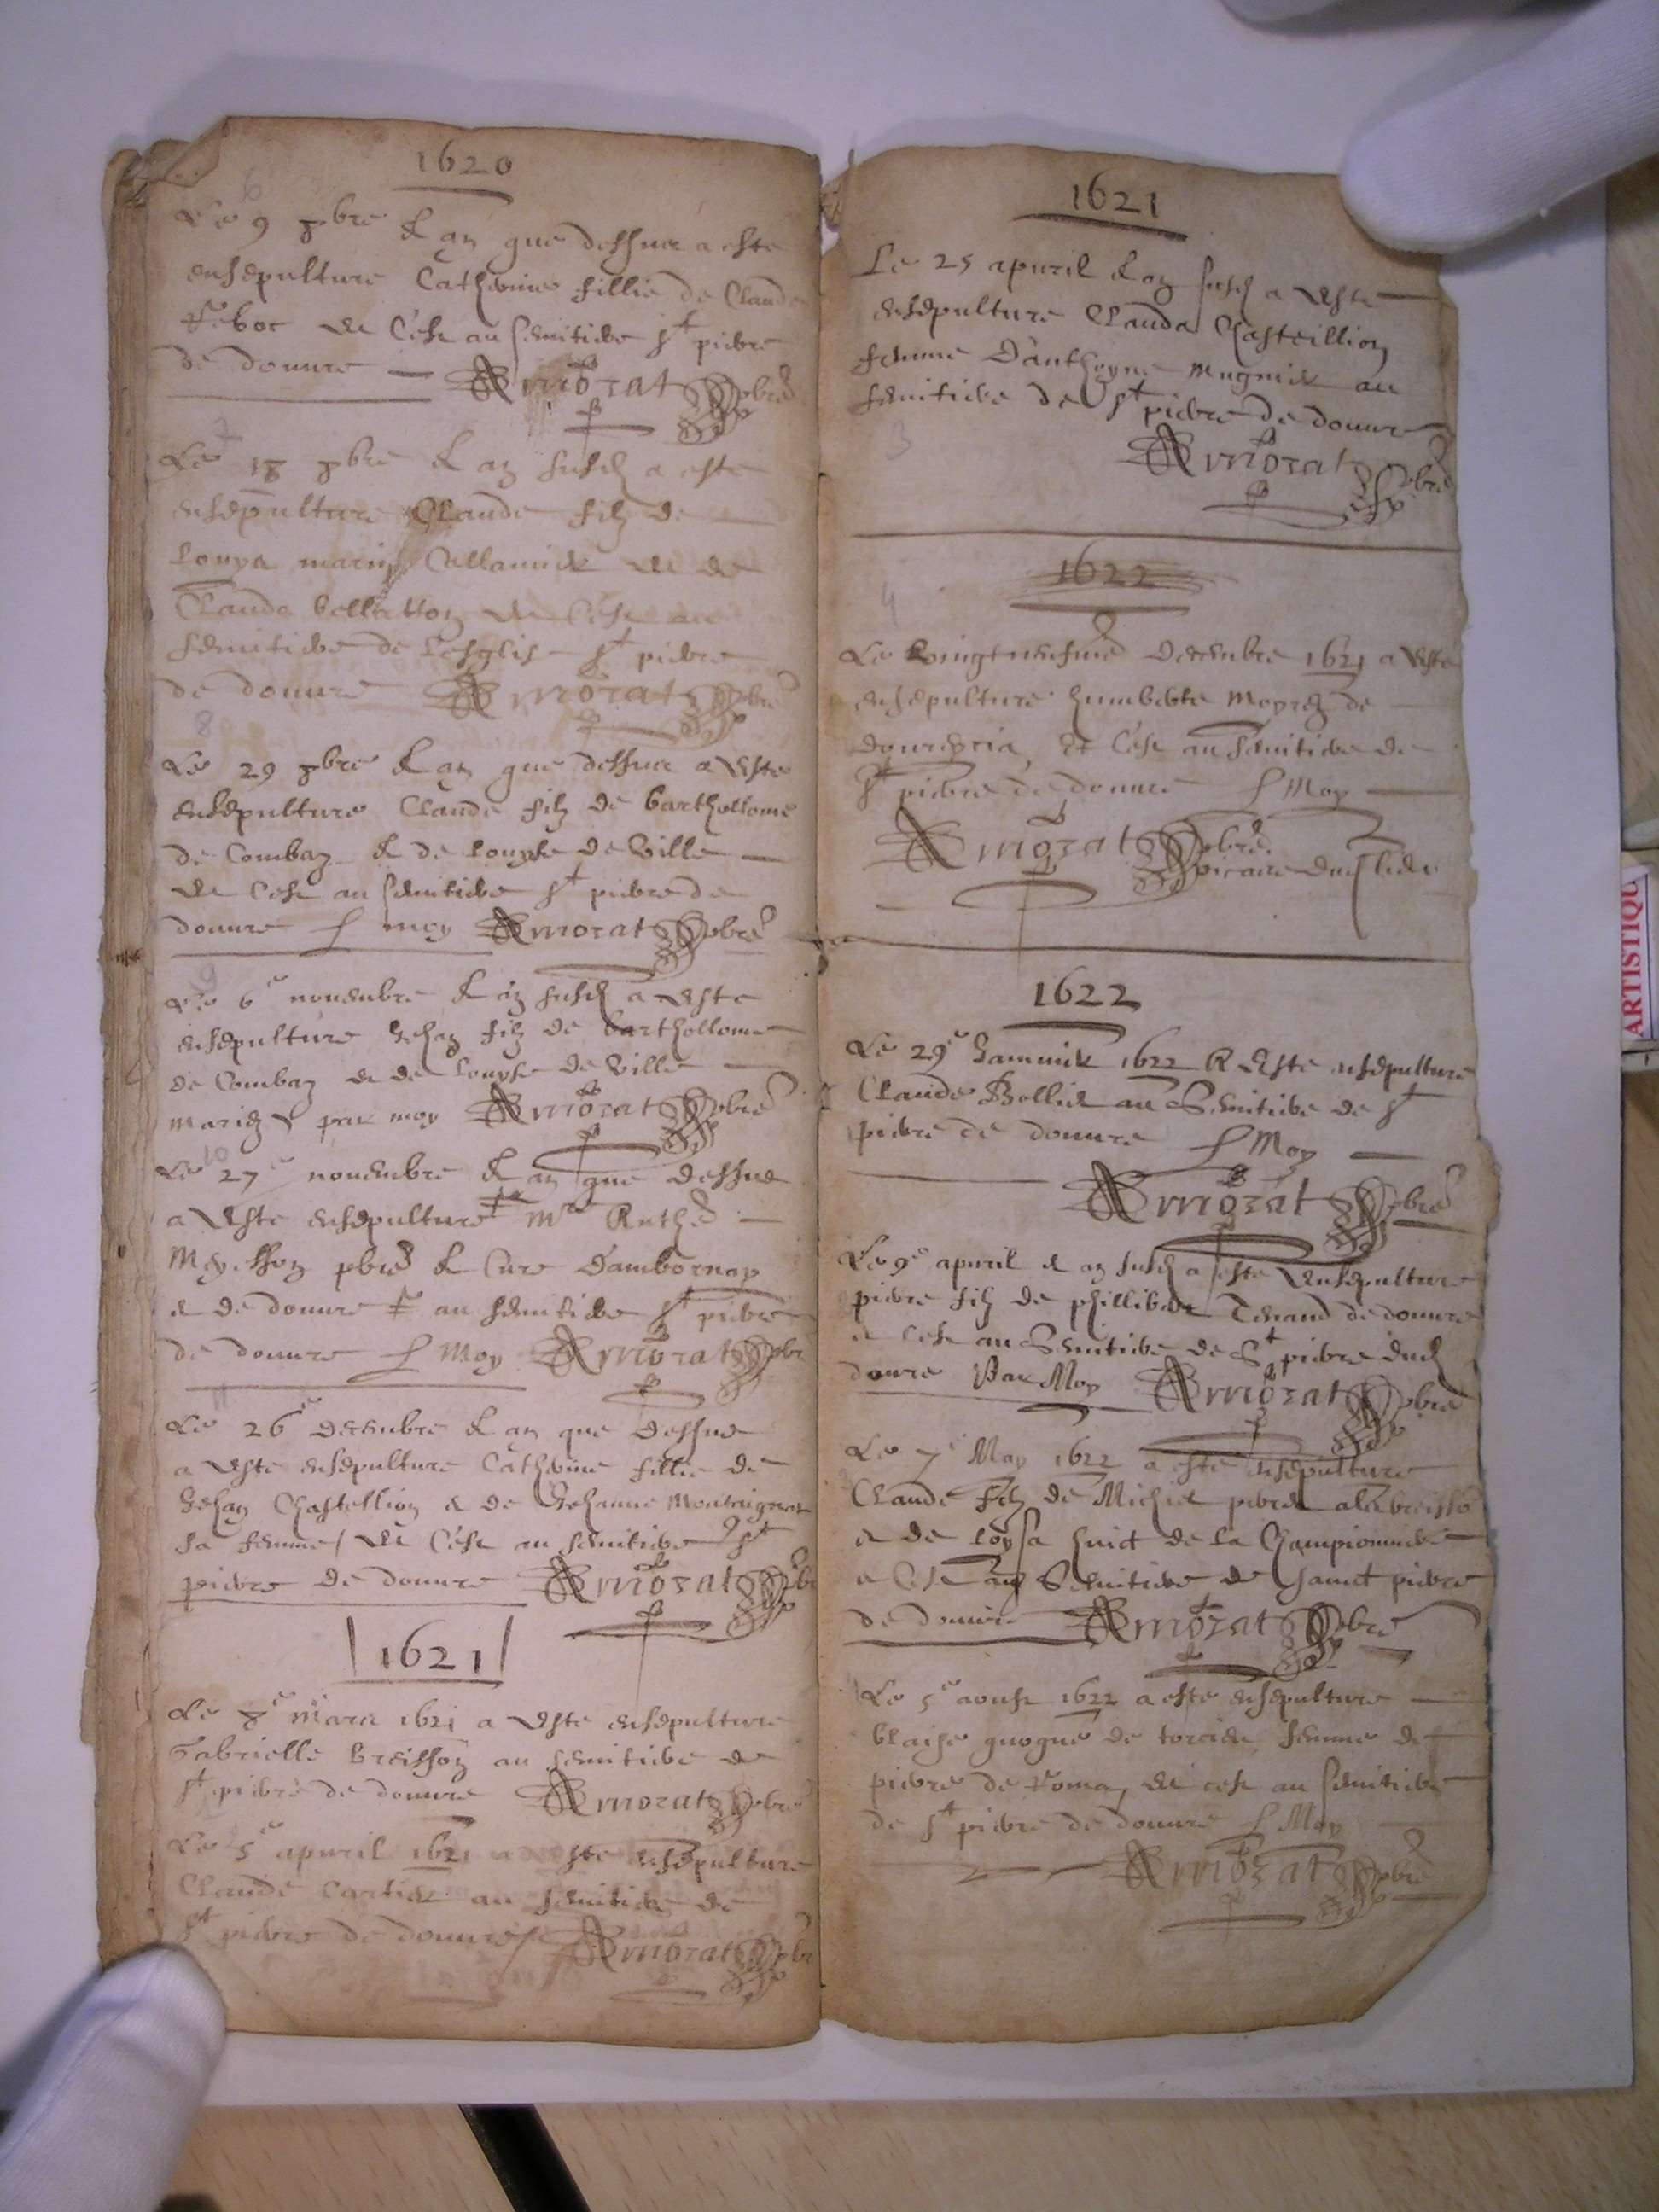 1620
Le 9 8bre & an que dessus a este
ensepulture Catherine fillie de Claude
et c'est au semitiere st pierre
de douvre Amorat pbre
Le 18 8bre & an susd a este
ensepulture Claude filz de
Louys Callamier et de
Clauda bellatton et c'est au
semitiere de l'esglise st pierre
de douvre Amorat pbre
Le 29 8bre & an que dessus a este
ensepulture Claude filz de barthollome
de Combaz & de Louyse de Ville
et c'est au semitiere st pierre de
douvre p moy Amorat pbre
Le 6e novembre & an susd a este
ensepulture Jehan filz de barthollome
de Combaz & de Louyse de Ville
mariez par moy Amorat pbre
Le 27e novembre & an que dessus
a este ensepulture mre Anthe
pbre & Cure d'ambornay
& de douvre au semitiere st pierre
de douvre p Moy Amorat pbr
Le 26e decembre & an que dessus
a este ensepulture Catherine fillie de
Jehan Chastellion & de Jehanne
sa femme / et c'est au semitiere st
pierre de douvre Amorat pbr
1621
Le 8e mars 1621 a este ensepulture
Gabrielle breisson au semitiere de
st pierre de douvre Amorat pbre
Le 5e apvril 1621 a este ensepulture
Claude Cartier au semitiere de
st pierre de douvre Amorat pbr
1621
Le 25 apvril & an susd a este
ensepulture Clauda Chasteillion
femme d'anthoyne mugnier au
semitiere de st pierre de douvre
Amorat pbre
1622
Le decembre 1621 a este
ensepulture humberte de
et c'est au semitiere de
st pierre de douvre p Moy
Amorat pbre vicaire dud lieu
1622
Le 29e Janvier 1622 A este ensepulture
Claude Bollier au Semitiere de st
pierre de douvre p Moy
Amorat pbre
Le 9e apvril & an susd a este ensepulture
pierre filz de phillibert Tenand de douvre
& c'est au Semitiere de St pierre dud
douvre Par Moy Amorat pbre
Le 7e May 1622 a este ensepulture
Claude filz de Michel
& de loysa huict de la Championniere
& c'est au Semitiere de sainct pierre
de douvre Amorat pbre
Le 5e aoust 1622 a este ensepulture
blaise guogue de torcieu femme de
pierre de et c'est au semitiere
de st pierre de douvre p Moy
Amorat pbre